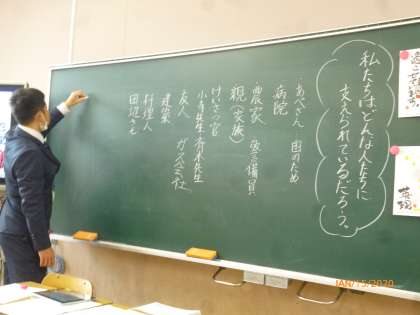 私たちはどんな人たちに
支えられているだろう。
あべさん 国のため
病院
農家 警備員
親(家族)
けいさつ官
小寺先生 青木先生
友人 ガス会社
建築
料理人
田辺さん
JAN/15/2020